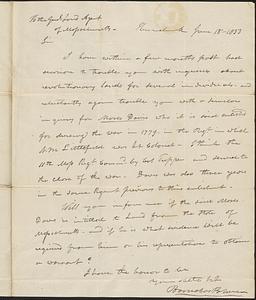 To the Genl Land Agent
of Massachusetts
Kennebunk June 18 1833
Sir
I have within a few months past had
occasion to trouble you with inquiries about
revolutionary lands for several individuals and
reluctantly again trouble you with a similar
inquiry for Moses Davis who it is said enlisted
for during the war in 1779 in the Regt in which
N. M. Littlefield was Lt Colonel. I think the
11th Mass Regt Comd by Col Tupper and served to
the close of the war. Davis was also three years
in the same Regient previous to this enlistment.
Will you inform me if the said Moses
Davis is intitled to land from the State of
Massachusetts and if so what evidence will be
required from him or his representatives to obtain
a warrant?
I have the honor to be
your obdt Servt
Barnabas Palmer